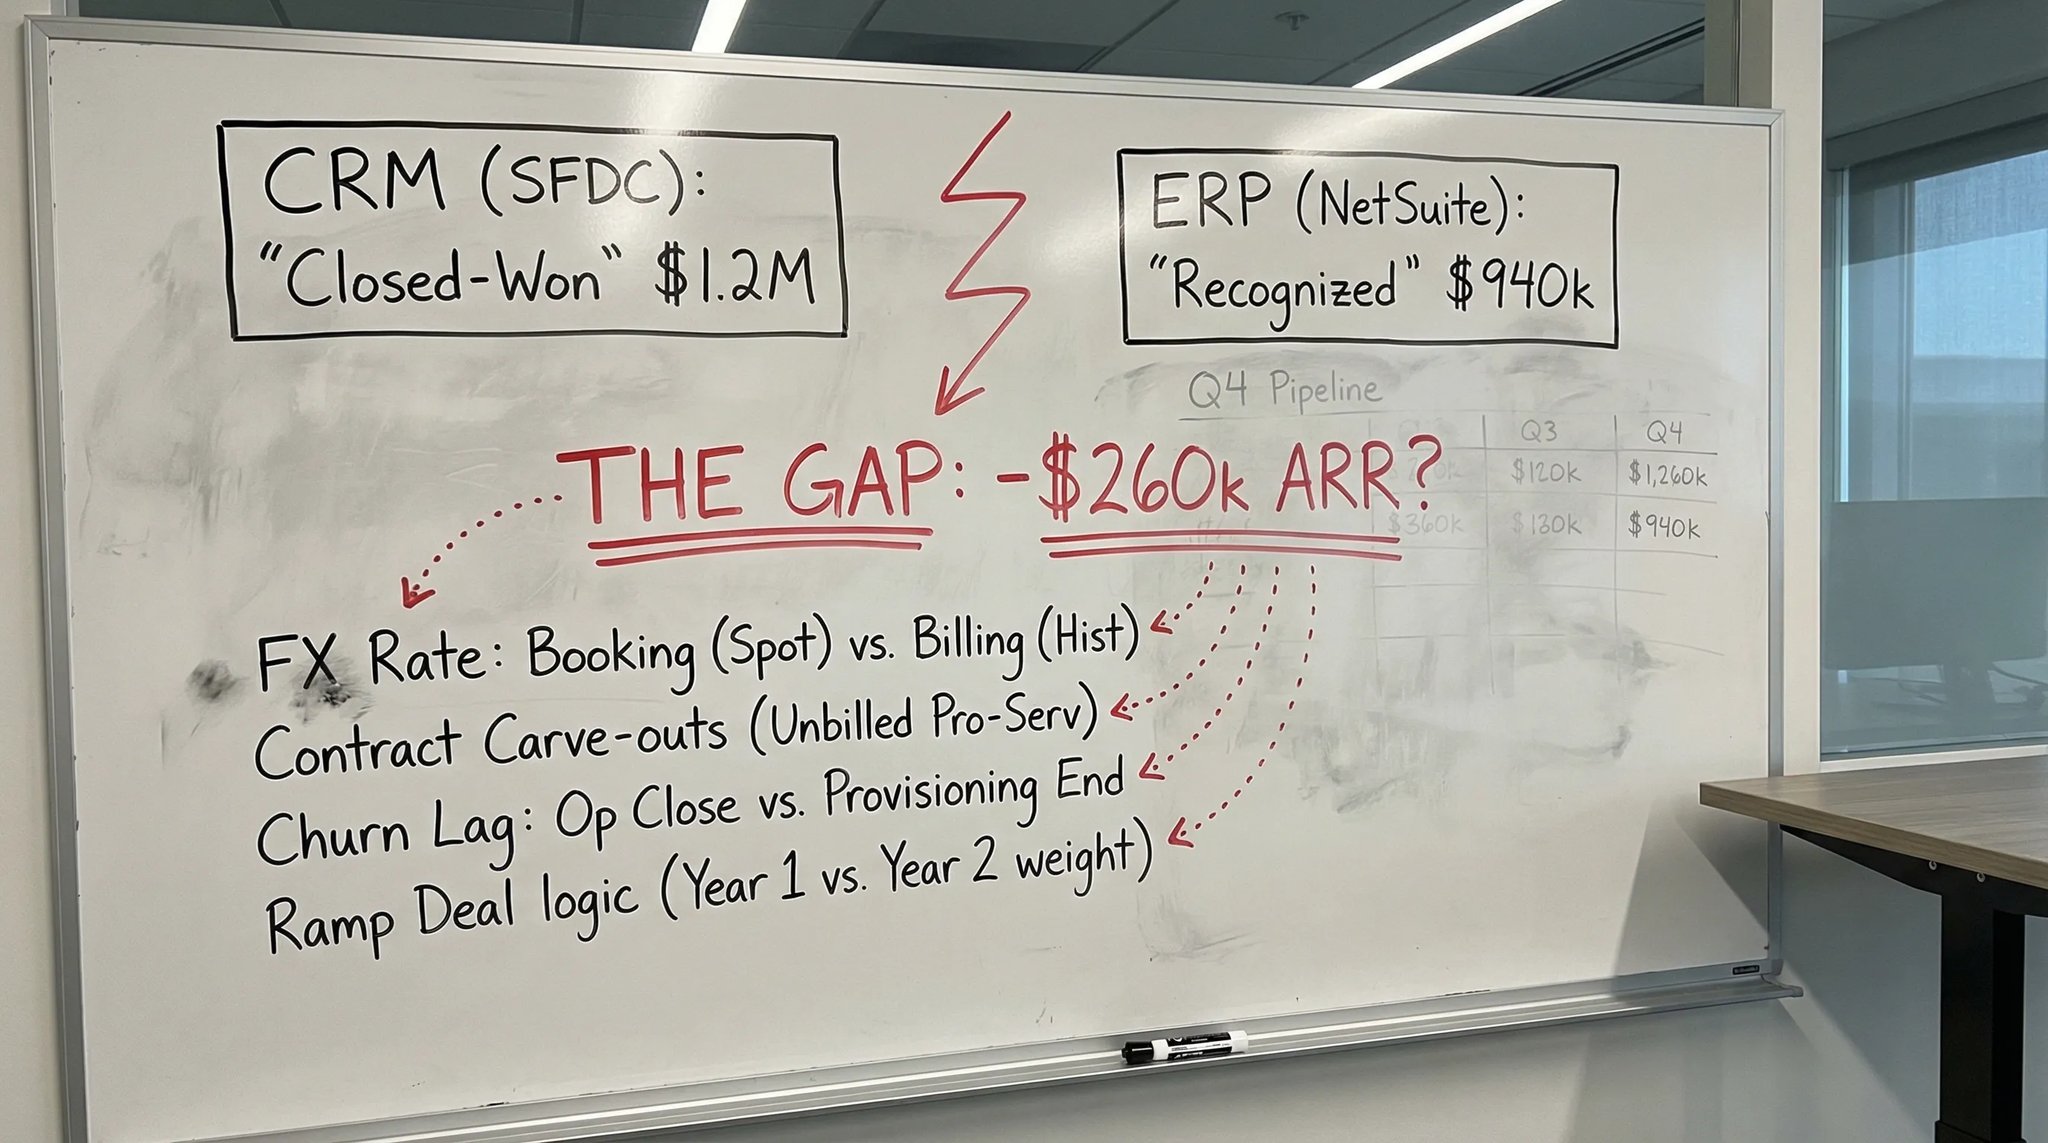 CRM (SFDC):
"Closed-Won" $1.2M
ERP (NetSuite):
"Recognized" $940k
THE GAP: -$260k ARR?
FX Rate: Booking (Spot) vs. Billing (Hist)
Contract Carve-outs (Unbilled Pro-Serv)
Churn Lag: Op Close vs. Provisioning End
Ramp Deal logic (Year 1 vs. Year 2 weight)
Q4 Pipeline
Q3 Q4
$120k $1,260k
$360k $130k $940k